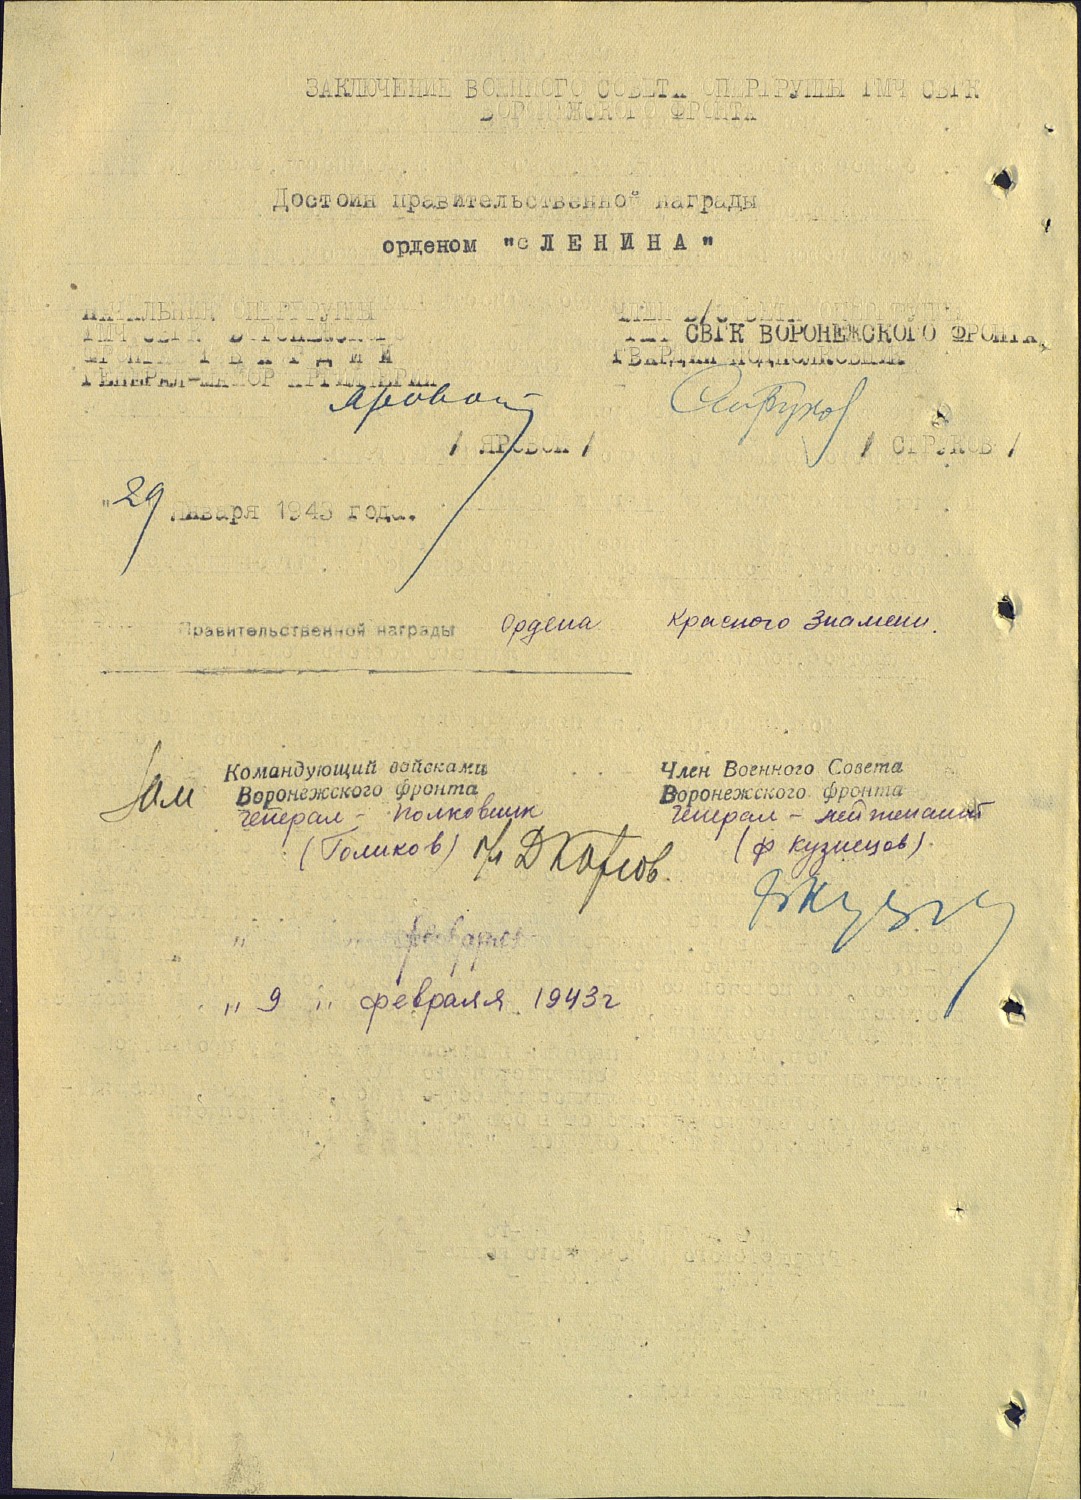 ЗАКЛЮЧЕНИЕ ВОЕННОГО СОВЕТА ОПЕРГРУППЫ ГМЧ СВГК
ВОРОНЕЖСКОГО ФРОНТА
Достоин правительственной награды
орденом "ЛЕНИНА"
НАЧАЛЬНИК ОПЕРГРУППЫ
ГМЧ СВГК ВОРОНЕЖСКОГО
ФРОНТА ГВАРДИИ
ГЕНЕРАЛ-МАЙОР АРТИЛЛЕРИИ
Яровой
/ ЯРОВОЙ /
ЧЛЕН В/СОВЕТА ОПЕРГРУППЫ
ГМЧ СВГК ВОРОНЕЖСКОГО ФРОНТА,
ГВАРДИИ ПОДПОЛКОВНИК
/ СТРУКОВ /
"29 Января 1943 года.
Правительственной награды Ордена Красного Знамени.
Зам Командующий войсками
Воронежского фронта
Генерал - полковник
(Голиков) п/п
Член Военного Совета
Воронежского фронта
Генерал - лейтенант
(Ф Кузнецов).
" февраля
" 9 " февраля 1943 г